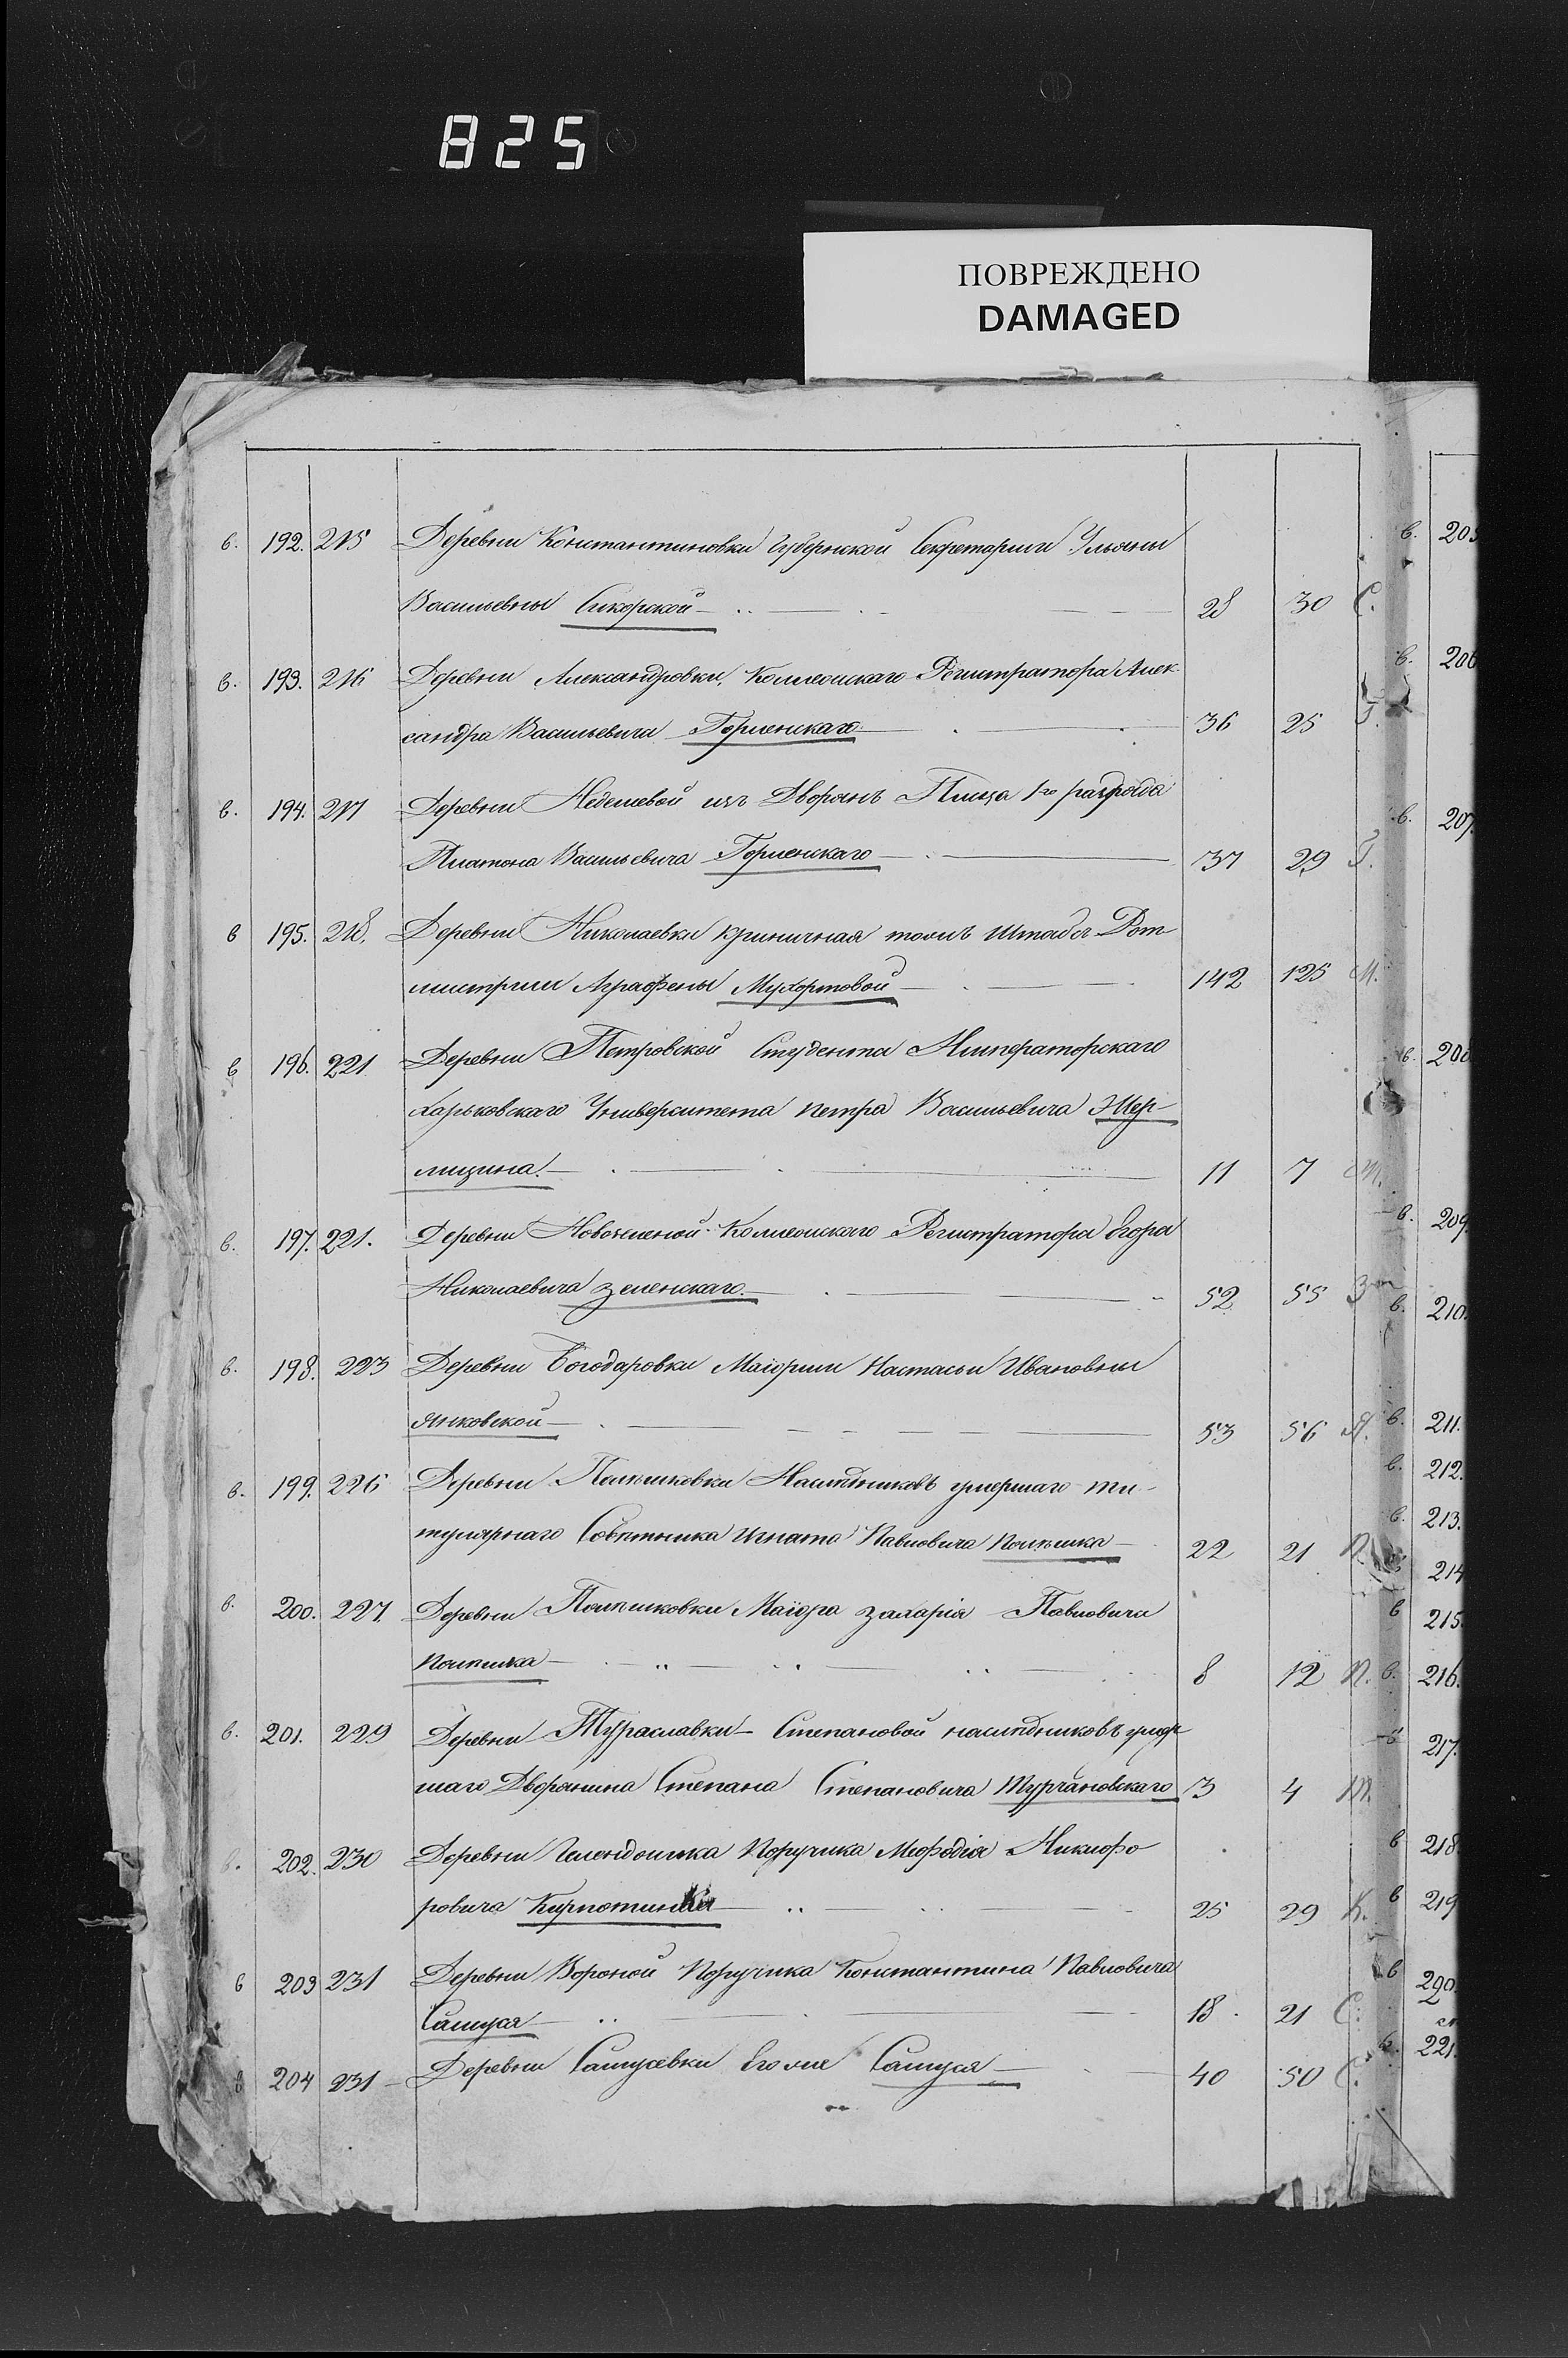 825
ПОВРЕЖДЕНО
DAMAGED
в. 192. 215 Деревни Константиновки Губернской Секретарши Ульяны
Васильевны Сикорской 28 30 С.
в. 193. 216 Деревни Александровки, Коллежскаго Регистратора Алек
сандра Васильевича Горленскаго 36 25 Г.
в. 194. 217 Деревни Недешевой изъ Дворянъ Писца 1го разряда
Платона Васильевича Горленскаго 37 29 Г.
в 195. 218. Деревни Николаевки Криничная тожъ Штабсъ Рот
мистрши Аграфены Мухортовой 142 125 М.
в 196. 221 Деревни Петровской Студента Императорскаго
Харьковскаго Университета Петра Васильевича
11 7
в. 197. 221. Деревни Коллежскаго Регистратора Егора
Николаевича Зеленскаго 52 55 З
в. 198. 223 Деревни Богодаровки Маіорши Настасьи Ивановны
Янковской 53 56 Я.
в. 199. 226 Деревни Наслѣдниковъ умершаго ти-
тулярнаго Совѣтника Игната Павловича 22 21 П.
в. 200. 227 Деревни Маіора Захарія Павловича
8 12 П.
в. 201. 229 Деревни Степановой наслѣдниковъ умер
шаго Дворянина Степана Степановича Турчановскаго 3 4 Т.
в. 202. 230 Деревни Поручика Мефодія Никифо
ровича 25 29 К.
в 203 231 Деревни Вороной Поручика Константина Павловича
Самуся 18 21 С.
в 204 231 Деревни Самусевки Его же Самуся 40 50 С.
в. 205
в. 206
в. 207.
в. 208
в. 209
в. 210.
в. 211.
в. 212.
в. 213.
214
в 215.
в. 216.
в 217.
в 218.
в 219
в 220.
в. 221.